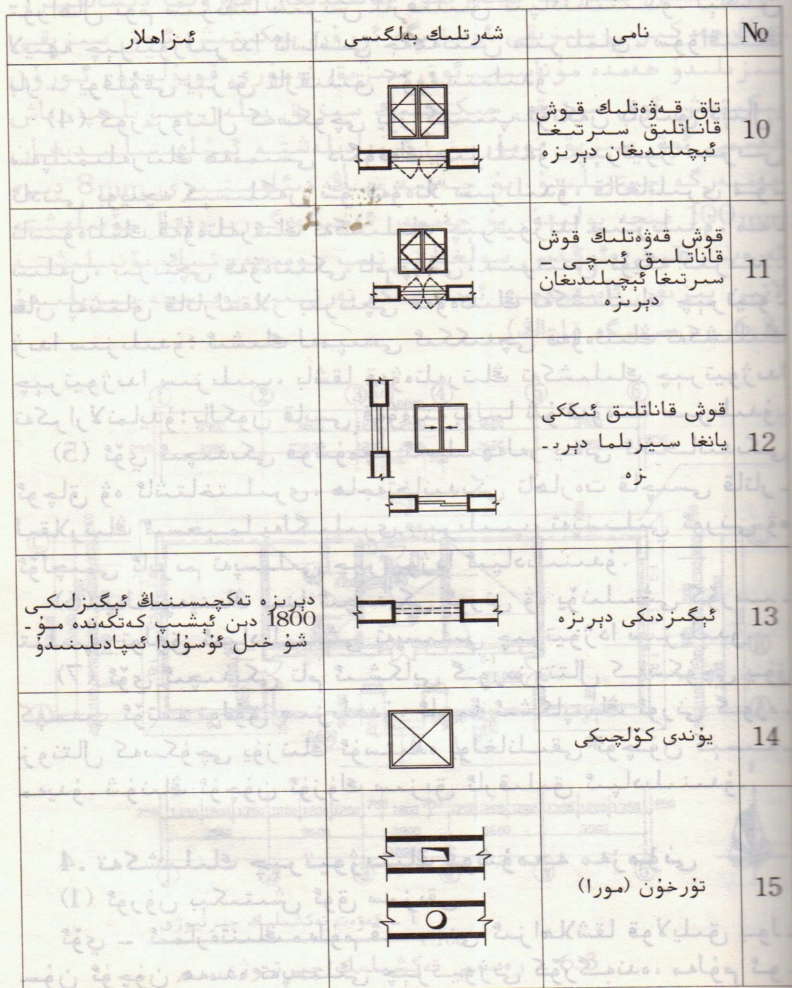 № نامى شەرتلىك بەلگىسى ئىزاھلار
10
تاق قەۋەتلىك قوش
قاناتلىق سىرتىغا
ئېچىلىدىغان دېرىزە
11
قوش قەۋەتلىك قوش
قاناتلىق ئىچى ـ
سىرتىغا ئېچىلىدىغان
دېرىزە
12
قوش قاناتلىق ئىككى
يانغا سىيرىلما دېرىـ
زە
13
ئېگىزدىكى دېرىزە
دېرىزە تەكچىسىنىڭ ئېگىزلىكى
1800 دىن ئېشىپ كەتكەندە مۇـ
شۇ خىل ئۇسۇلدا ئىپادىلىنىدۇ
14
يۇندى كۆلچىكى
15
تۇرخۇن (مورا)